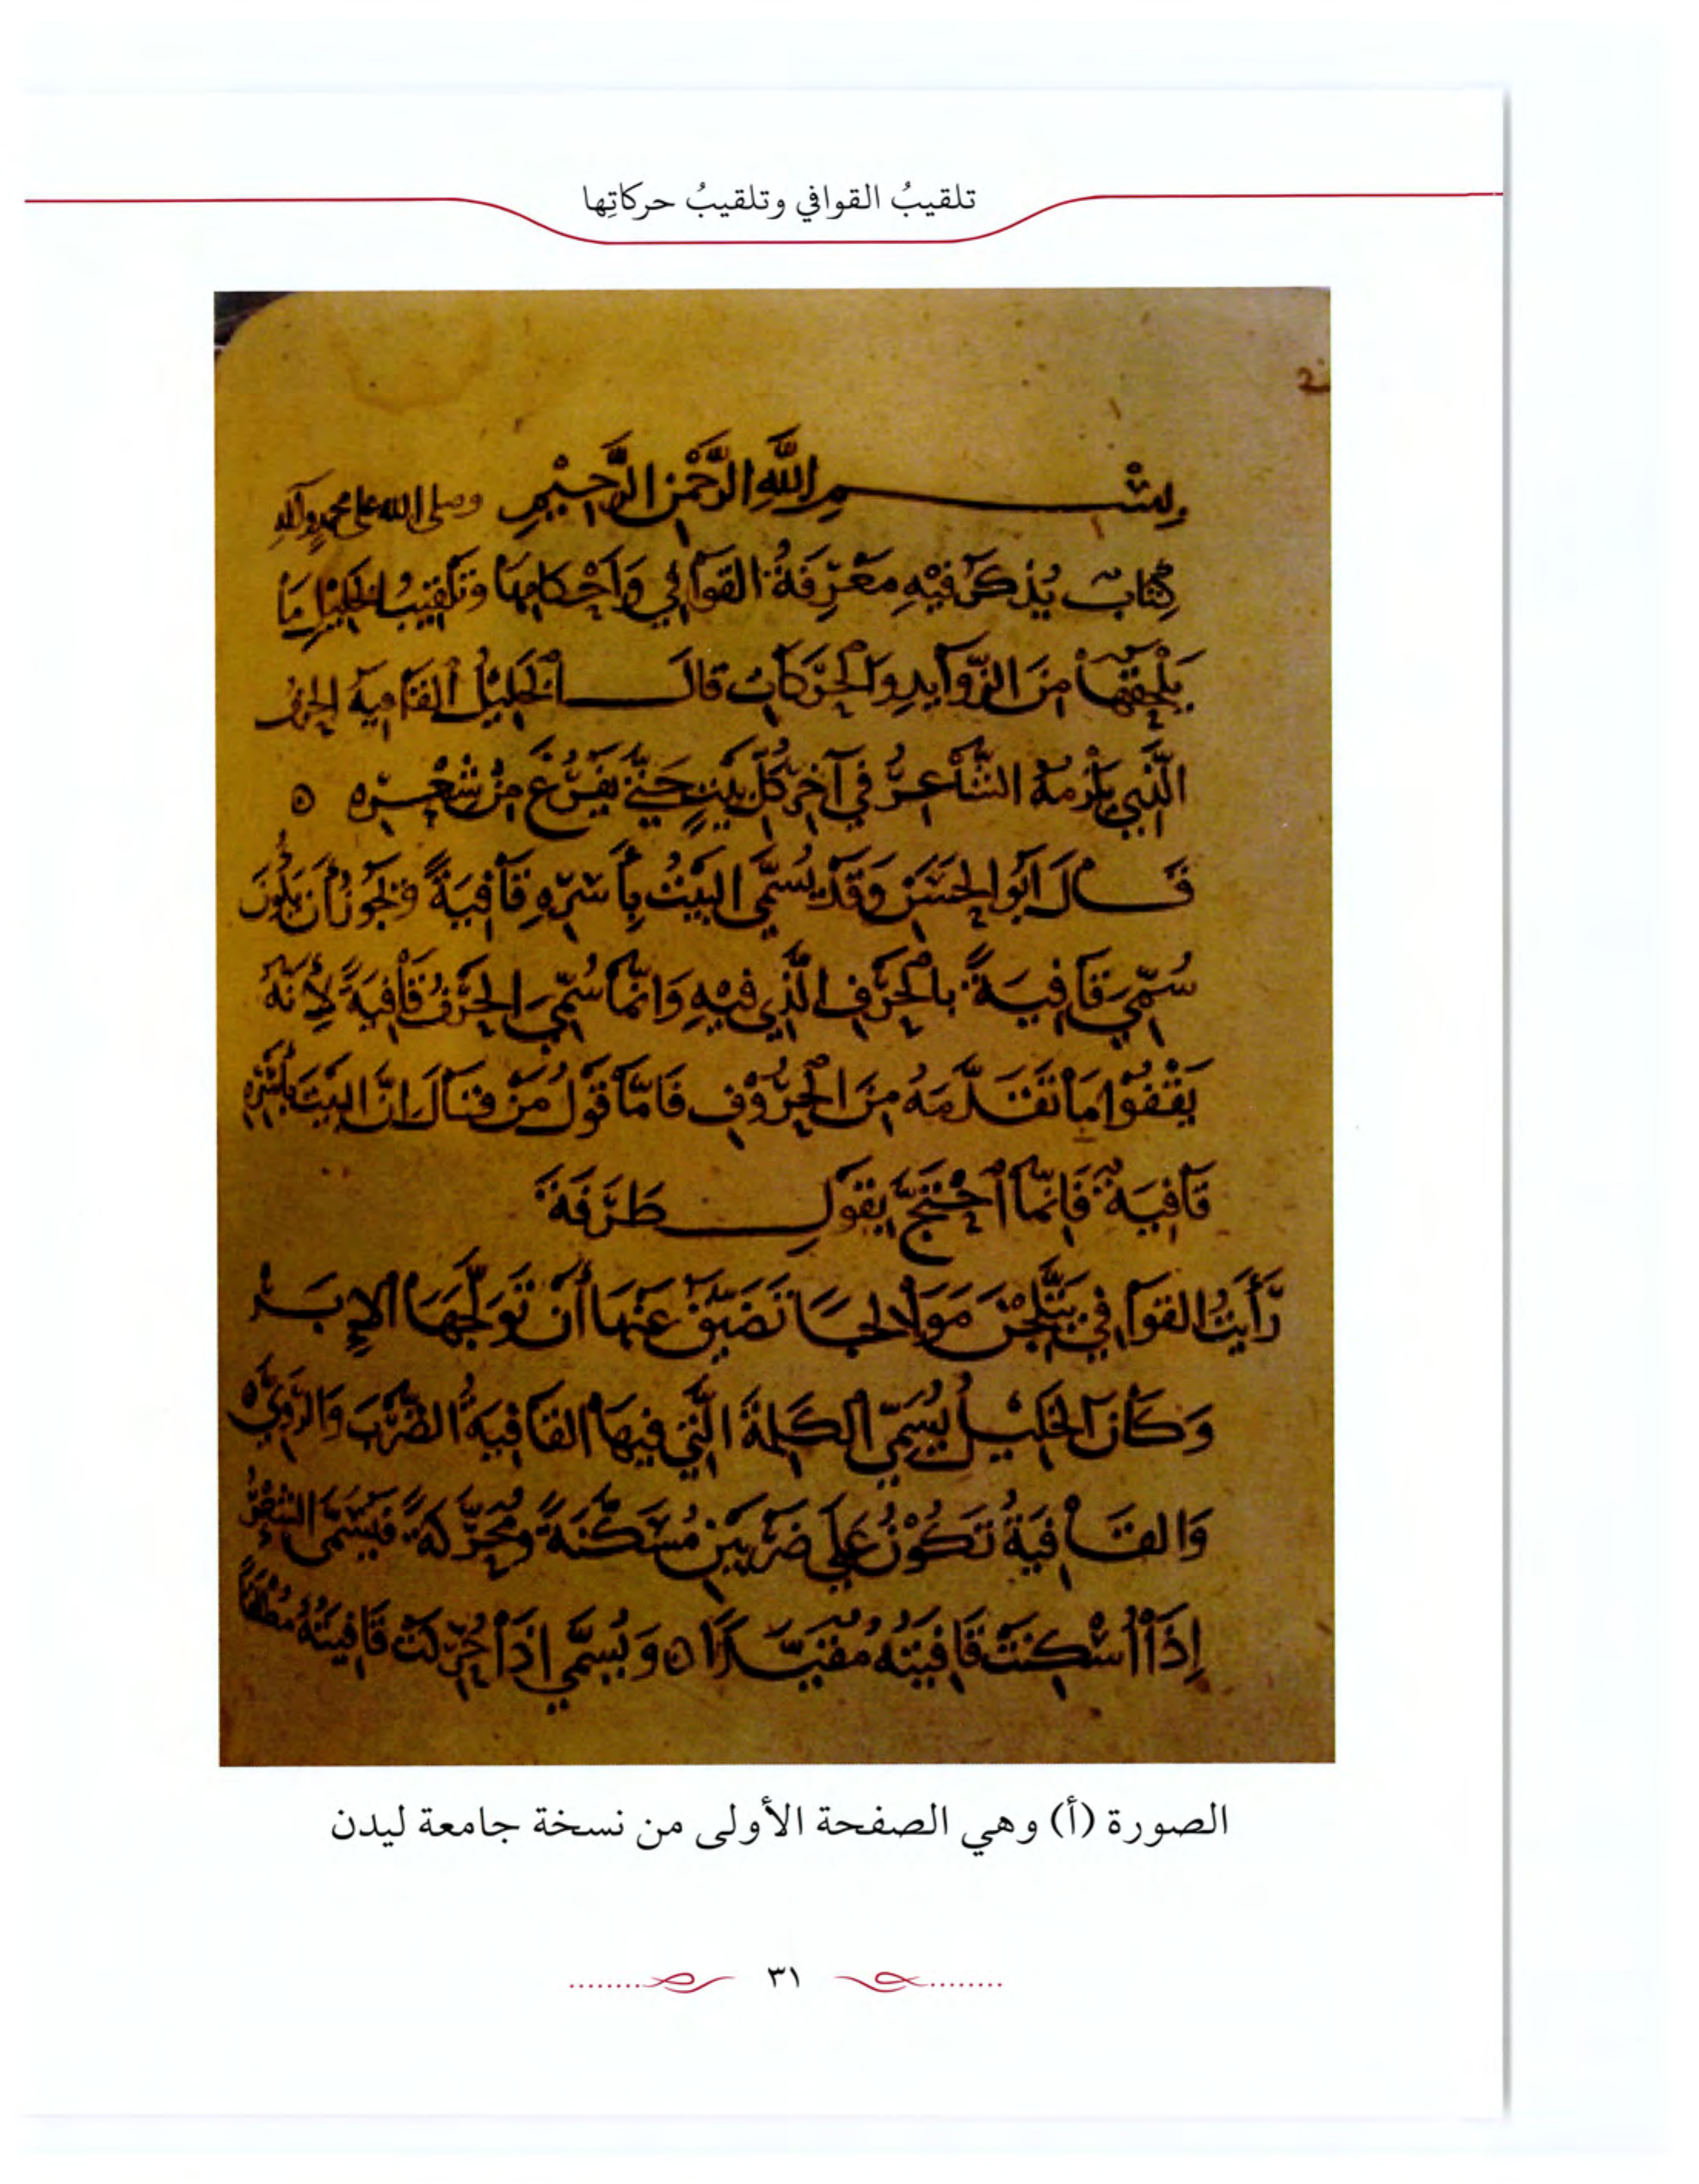 تلقيبُ القوافي وتلقيبُ حركاتِها
2
بِسْمِ اللَّهِ الرَّحْمٰنِ الرَّحِيْمِ وصلى الله على محمد وآله
كِتَابٌ يُذْكَرُ فيْهِ مَعْرِفَةُ القوَافي وَأَحْكَامِهَا وَتَلْقِيبُ الخليل مَا
يَلْحَقُهَا مِنَ الزَّوَايدِ وَالْحَرَكَاتِ قالَ الْخَلِيْلُ الْقَافِيةُ الحرف
الَّذِي يَلْزمهُ الشَّاعِرُ في آخِرِ كُلِّ بَيْتٍ حَتَّى يَفْرُغَ مِنْ شِعْرِهِ ه
قَالَ ابَوُ الحَسَنِ وَقَدْ يُسَمَّى البَيْتُ بِأَسْرِهِ قَافِيَةً وَيَجوزُ أن يَكُونَ
سُمِّيَ قَافِيَةً بالحَرْفِ الَّذِي فيْهِ وَانَّمَا سُمِّيَ الحَرْفُ قَافِيَةً لأِنَّهُ
يَقْفُوْا مَا تَقَدَّمَهُ مِنَ الْحُرُوْفِ فَامَّا قَوْلُ مَنْ قالَ إنَّ البَيْتَ بأَسْرِهِ
قَافِيَةٌ فَانَّمَا احْتَجَّ بِقَوْلِ طَرَفَةَ
رَأَيْتُ القوَافِي يَتَّلِجْنَ مَوَالِجَا تَضَيَّقُ عَنْهَا أَنْ تَوَلَّجَهَا الإِبَرْ
وَكَانَ الخَلِيْلُ يُسَمِّي الكَلِمَةَ الَّتِي فِيهَا القَافِيَةُ الضَّرْبَ وَالرَّوِيَّ ه
وَالقَافِيَةُ تَكُوْنُ عَلَى ضَرْبَيْنِ مُسَكَّنَةً وَمُحَرَّكَةً فَيُسَمَّى الشِّعْرُ
إِذَا أُسْكِنَتْ قَافِيَتُهُ مُقَيَّدًا ه وَيُسَمَّي اِذَا حُرِّكَتْ قَافِيَتُهُ مُطْلَقًا
الصورة (أ) وهي الصفحة الأولى من نسخة جامعة ليدن
٣١